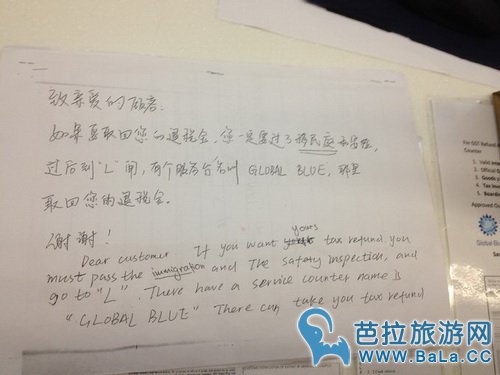 致亲爱的顾客:
如果要取回您的退税金,您一定要过了移民庭和安检,
过后到"L"闸,有个服务台名叫 GLOBAL BLUE, 那里
取回您的退税金.
谢谢!
Dear customer If you want yours tax refund you
must pass the immigration and The safaty inspection, and
go to "L". There have a service counter name is
"GLOBAL BLUE" There can take you tax refund
For GST Refund
Counter
1. Valid
2. Official
3. Goods
4. Tax
5. Board
Approved
Global Bl
芭拉旅游网
www.BaLa.CC